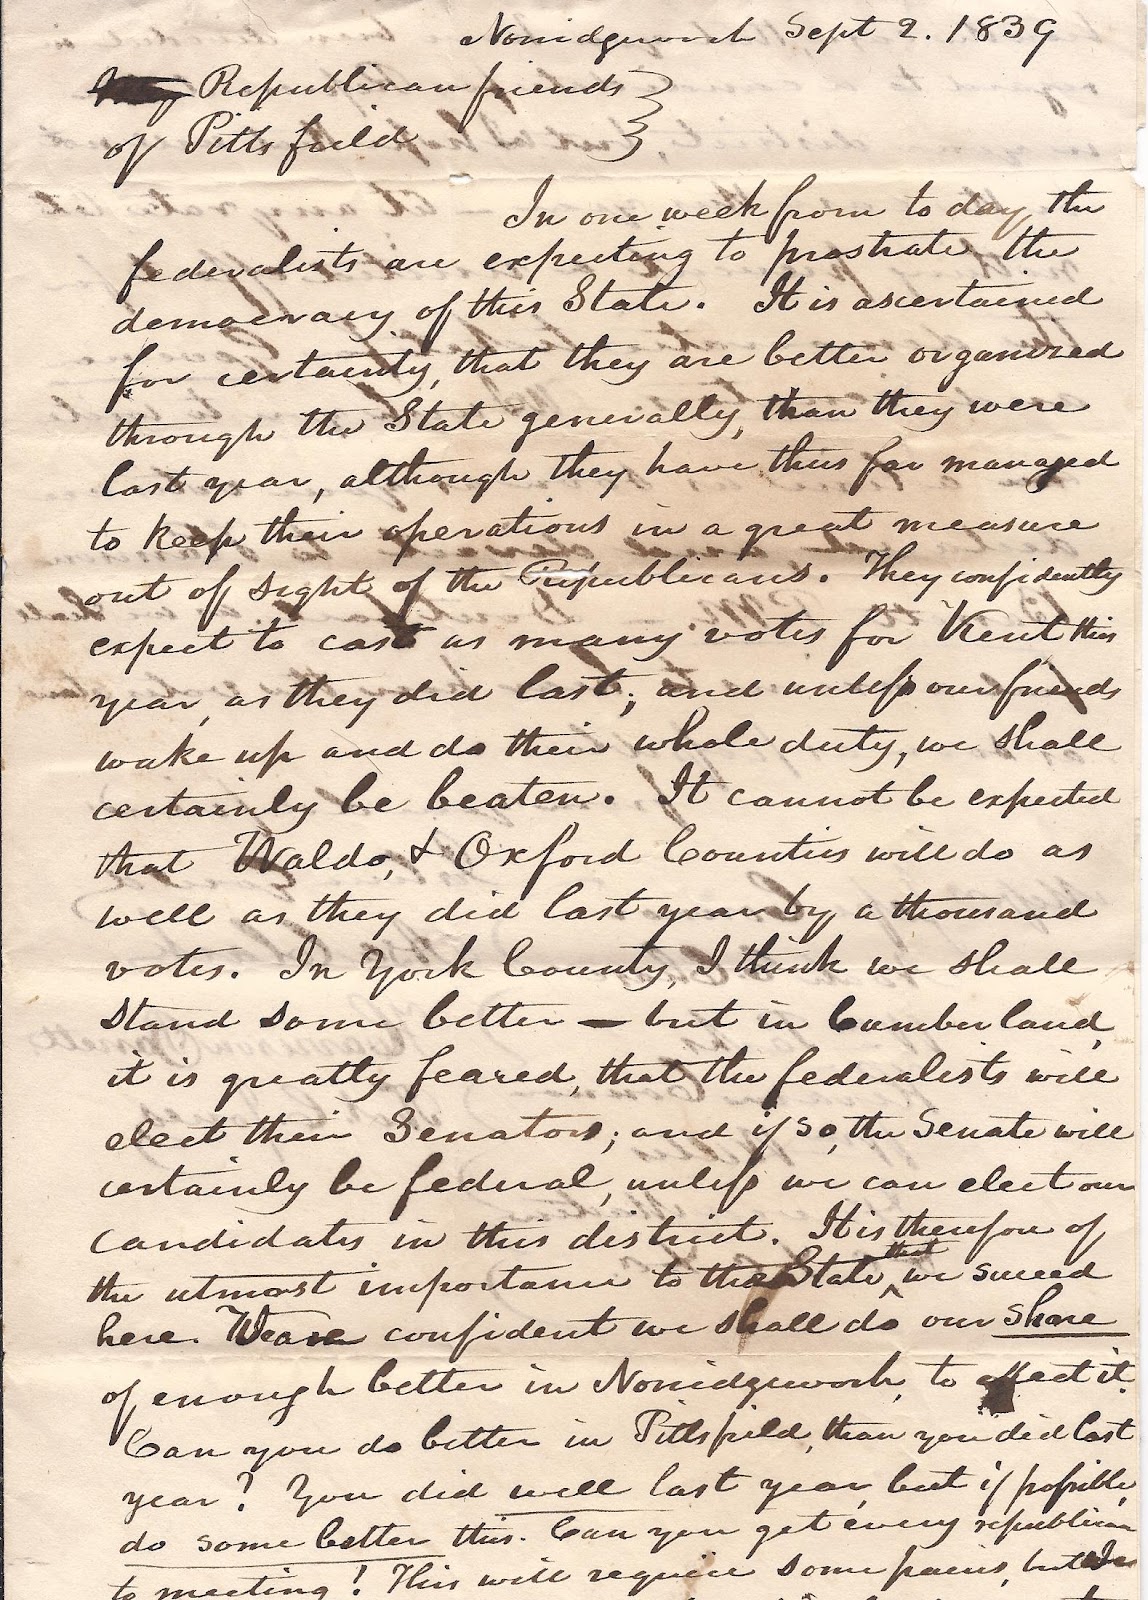 Norridgewock Sept 2. 1839
Republican friends
of Pittsfield
In one week from to day, the
federalists are expecting to prostrate the
democracy of this State. It is ascertained
for certainty, that they are better organized
through the State generally, than they were
last year, although they have thus far managed
to keep their operations in a great measure
out of sight of the Republicans. They confidently
expect to cast as many votes for Kent this
year, as they did last; and unless our friends
wake up and do their whole duty, we shall
certainly be beaten. It cannot be expected
that Waldo, & Oxford Counties will do as
well as they did last year by a thousand
votes. In York County, I think we shall
stand some better — but in Cumberland,
it is greatly feared, that the federalists will
elect their Senators; and if so, the Senate will
certainly be federal, unless we can elect our
candidates in this district. It is therefore of
the utmost importance to the State, that we succeed
here. We are confident we shall do our share
of enough better in Norridgewock, to effect it.
Can you do better in Pittsfield, than you did last
year? You did well last year, but if possible,
do some better this. Can you get every republican
to meeting! This will require some pains, but